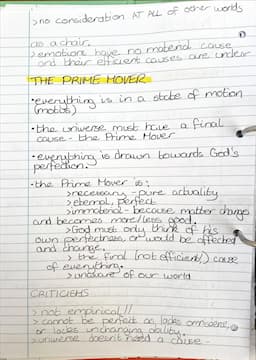 >no consideration AT ALL of other worlds
as a chair.
>emotions have no material cause
and their efficient causes are unclear
THE PRIME MOVER
•everything is in a state of motion
(motus)
•the universe must have a final
cause - the Prime Mover
•everything is drawn towards God's
perfection.
•the Prime Mover is:
>necessary - pure actuality
>eternal, perfect
>immaterial - because matter changes
and becomes more/less good.
>God must only think of his
own perfectness, or would be affected
and change.
>the final (not efficient) cause
of everything.
>unaware of our world
CRITICISMS
>not empirical!!
>cannot be perfect as lacks omniscience,
or lacks unchanging ability.
>universe doesn't need a cause -